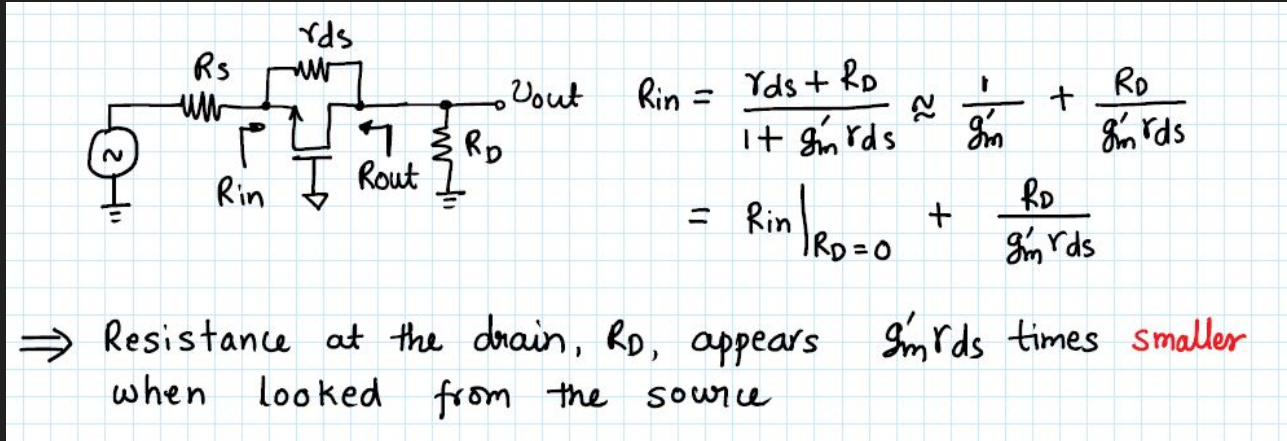 rds
Rs
Vout
RD
Rin
Rout
Rin = (rds + RD) / (1 + g'm rds) ≈ 1 / g'm + RD / (g'm rds)
= Rin |RD=0 + RD / (g'm rds)
⇒ Resistance at the drain, RD, appears g'm rds times smaller
when looked from the source